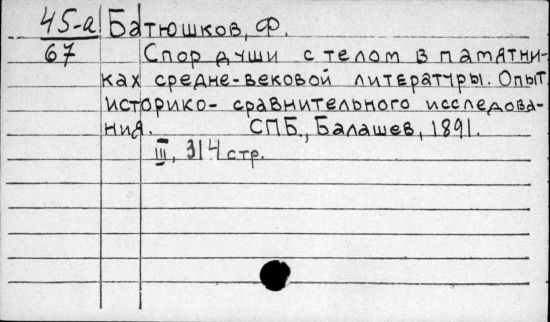 45-а Батюшков, Ф.
67 Спор души с телом в памятни-
ках средне-вековой литературы. Опыт
историко- сравнительного исследова-
ния. СПБ., Балашев, 1891.
III, 314 стр.